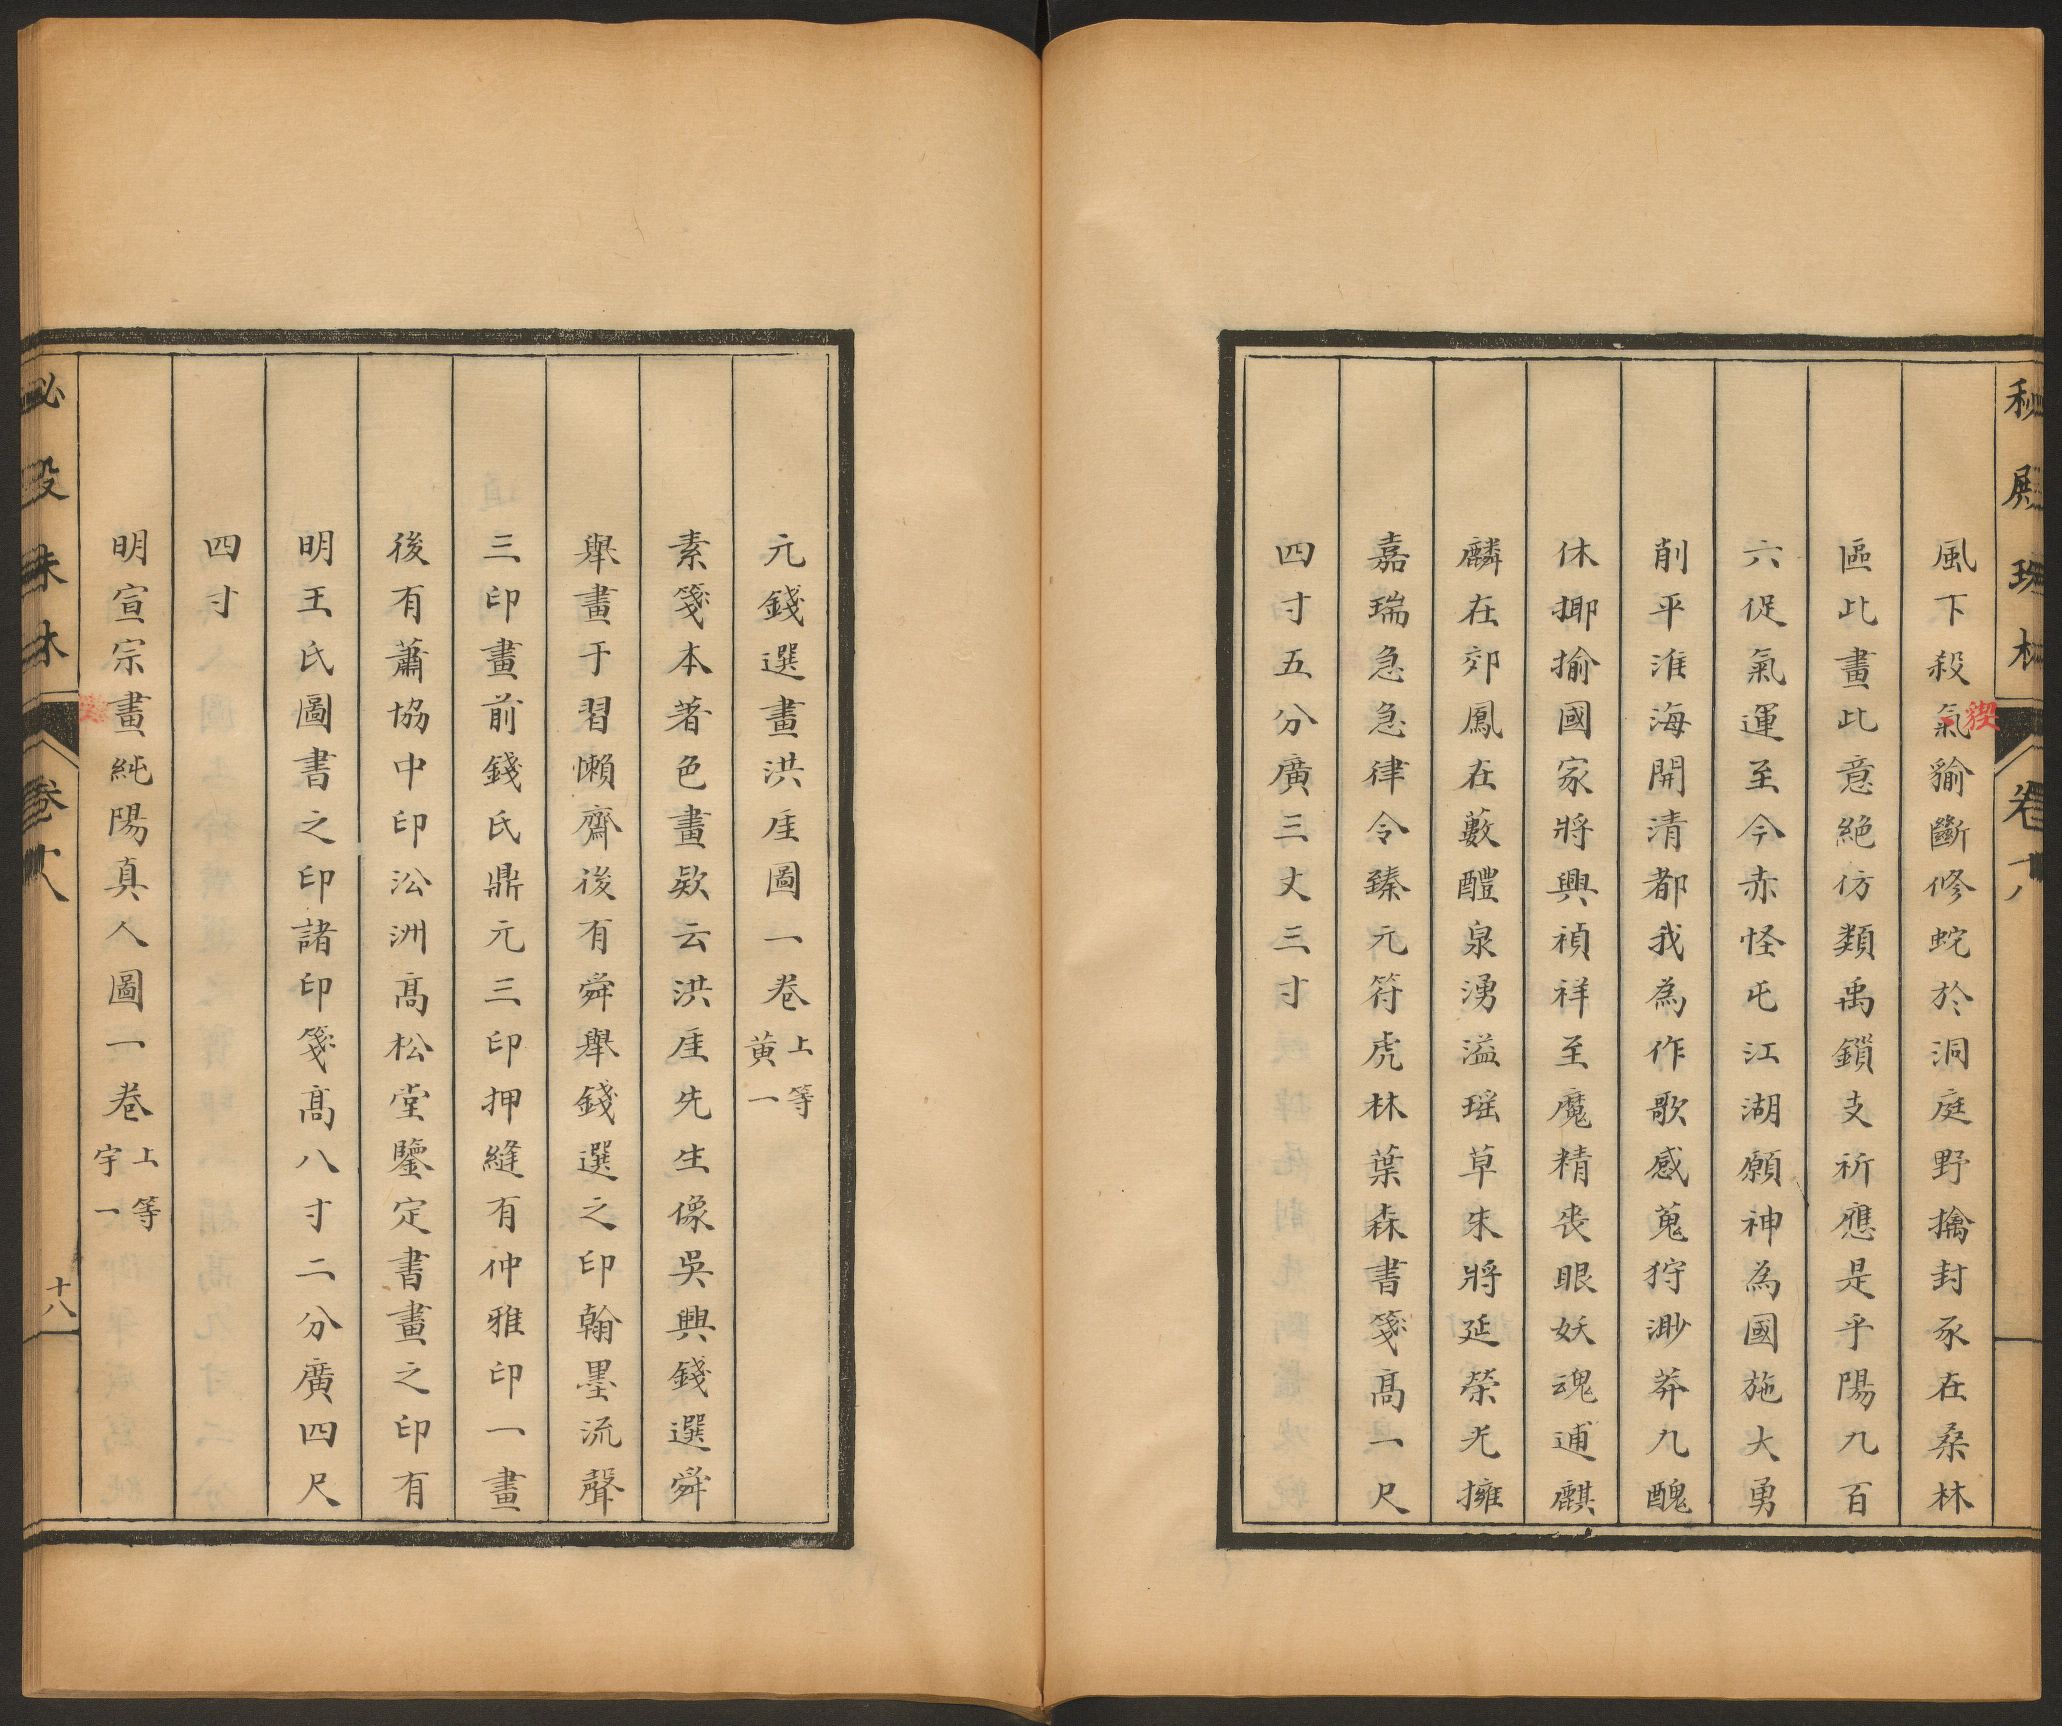 秘殿珠林 卷十八
風下殺氣貐斷修蛇於洞庭野擒封豕在桑林
猰
區此畫此意絕仿類禹鎖支祈應是乎陽九百
六促氣運至今赤怪屯江湖願神為國施大勇
削平淮海開清都我為作歌感蒐狩渺莽九醜
休揶揄國家將興禎祥至魔精喪眼妖魂逋麒
麟在郊鳳在藪醴泉湧溢瑤草朱將延榮光擁
嘉瑞急急律令臻元符虎林葉森書箋高一尺
四寸五分廣三丈三寸
元錢選畫洪厓圖一卷 上等 黃一
素箋本著色畫欵云洪厓先生像吳興錢選舜
舉畫于習懶齋後有舜舉錢選之印翰墨流聲
三印畫前錢氏鼎元三印押縫有仲雅印一畫
後有蕭協中印㳂洲高松堂鑒定書畫之印有
明王氏圖書之印諸印箋高八寸二分廣四尺
四寸
明宣宗畫純陽真人圖一卷 上等 宇一
秘殿珠林 卷十八 十八